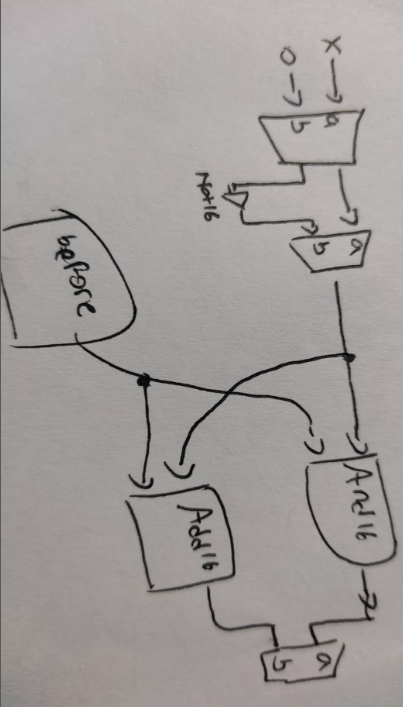 X
0
a
b
Not16
a
b
before
And16
Add16
a
b